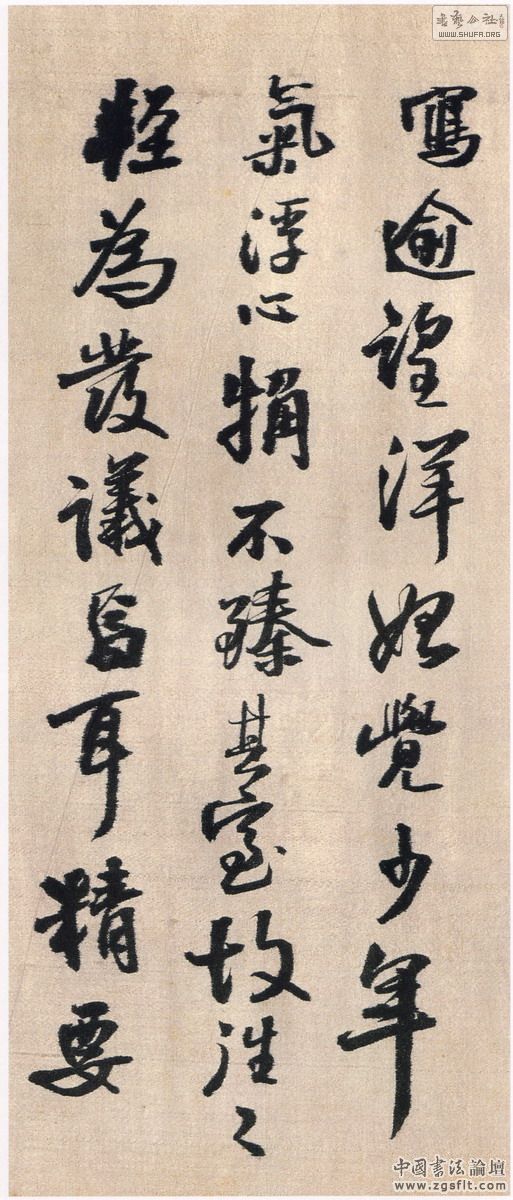 書藝公社
WWW.SHUFA.ORG
寫逾望洋始覺少年
氣浮心觕不臻其室故往々
輕為發議耳精要
中國書法論壇
www.zgsflt.com